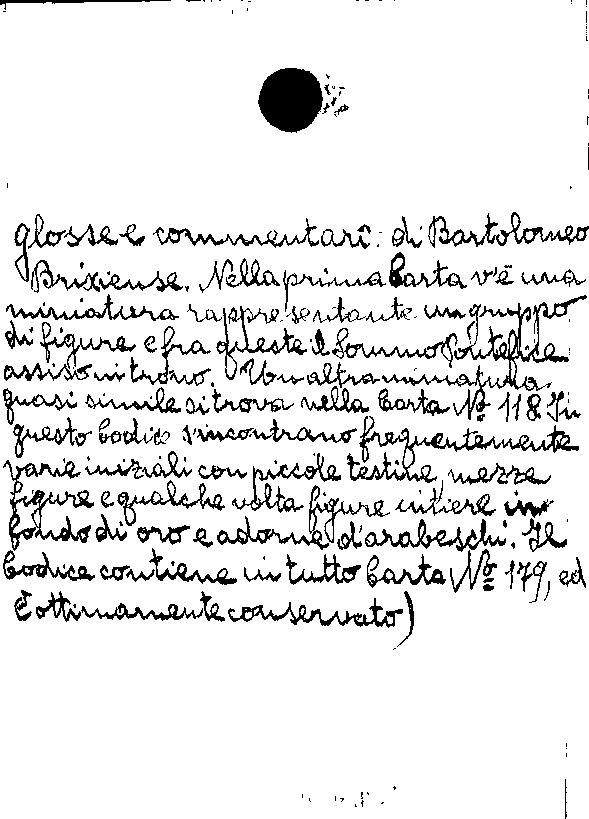 glosse e commentarî: di Bartolomeo
Brixiense. Nella prima Carta v'è una
miniatura rappresentante un gruppo
di figure e fra queste il Sommo Pontefice
assiso in trono. Un altra miniatura
quasi simile si trova nella Carta Nº 118. In
questo Codice s'incontrano frequentemente
varie iniziali con piccole testine, mezze
figure e qualche volta figure intiere in
fondo di oro e adorne d'arabeschi. Il
Codice contiene in tutto Carta Nº 179, ed
è ottimamente conservato)